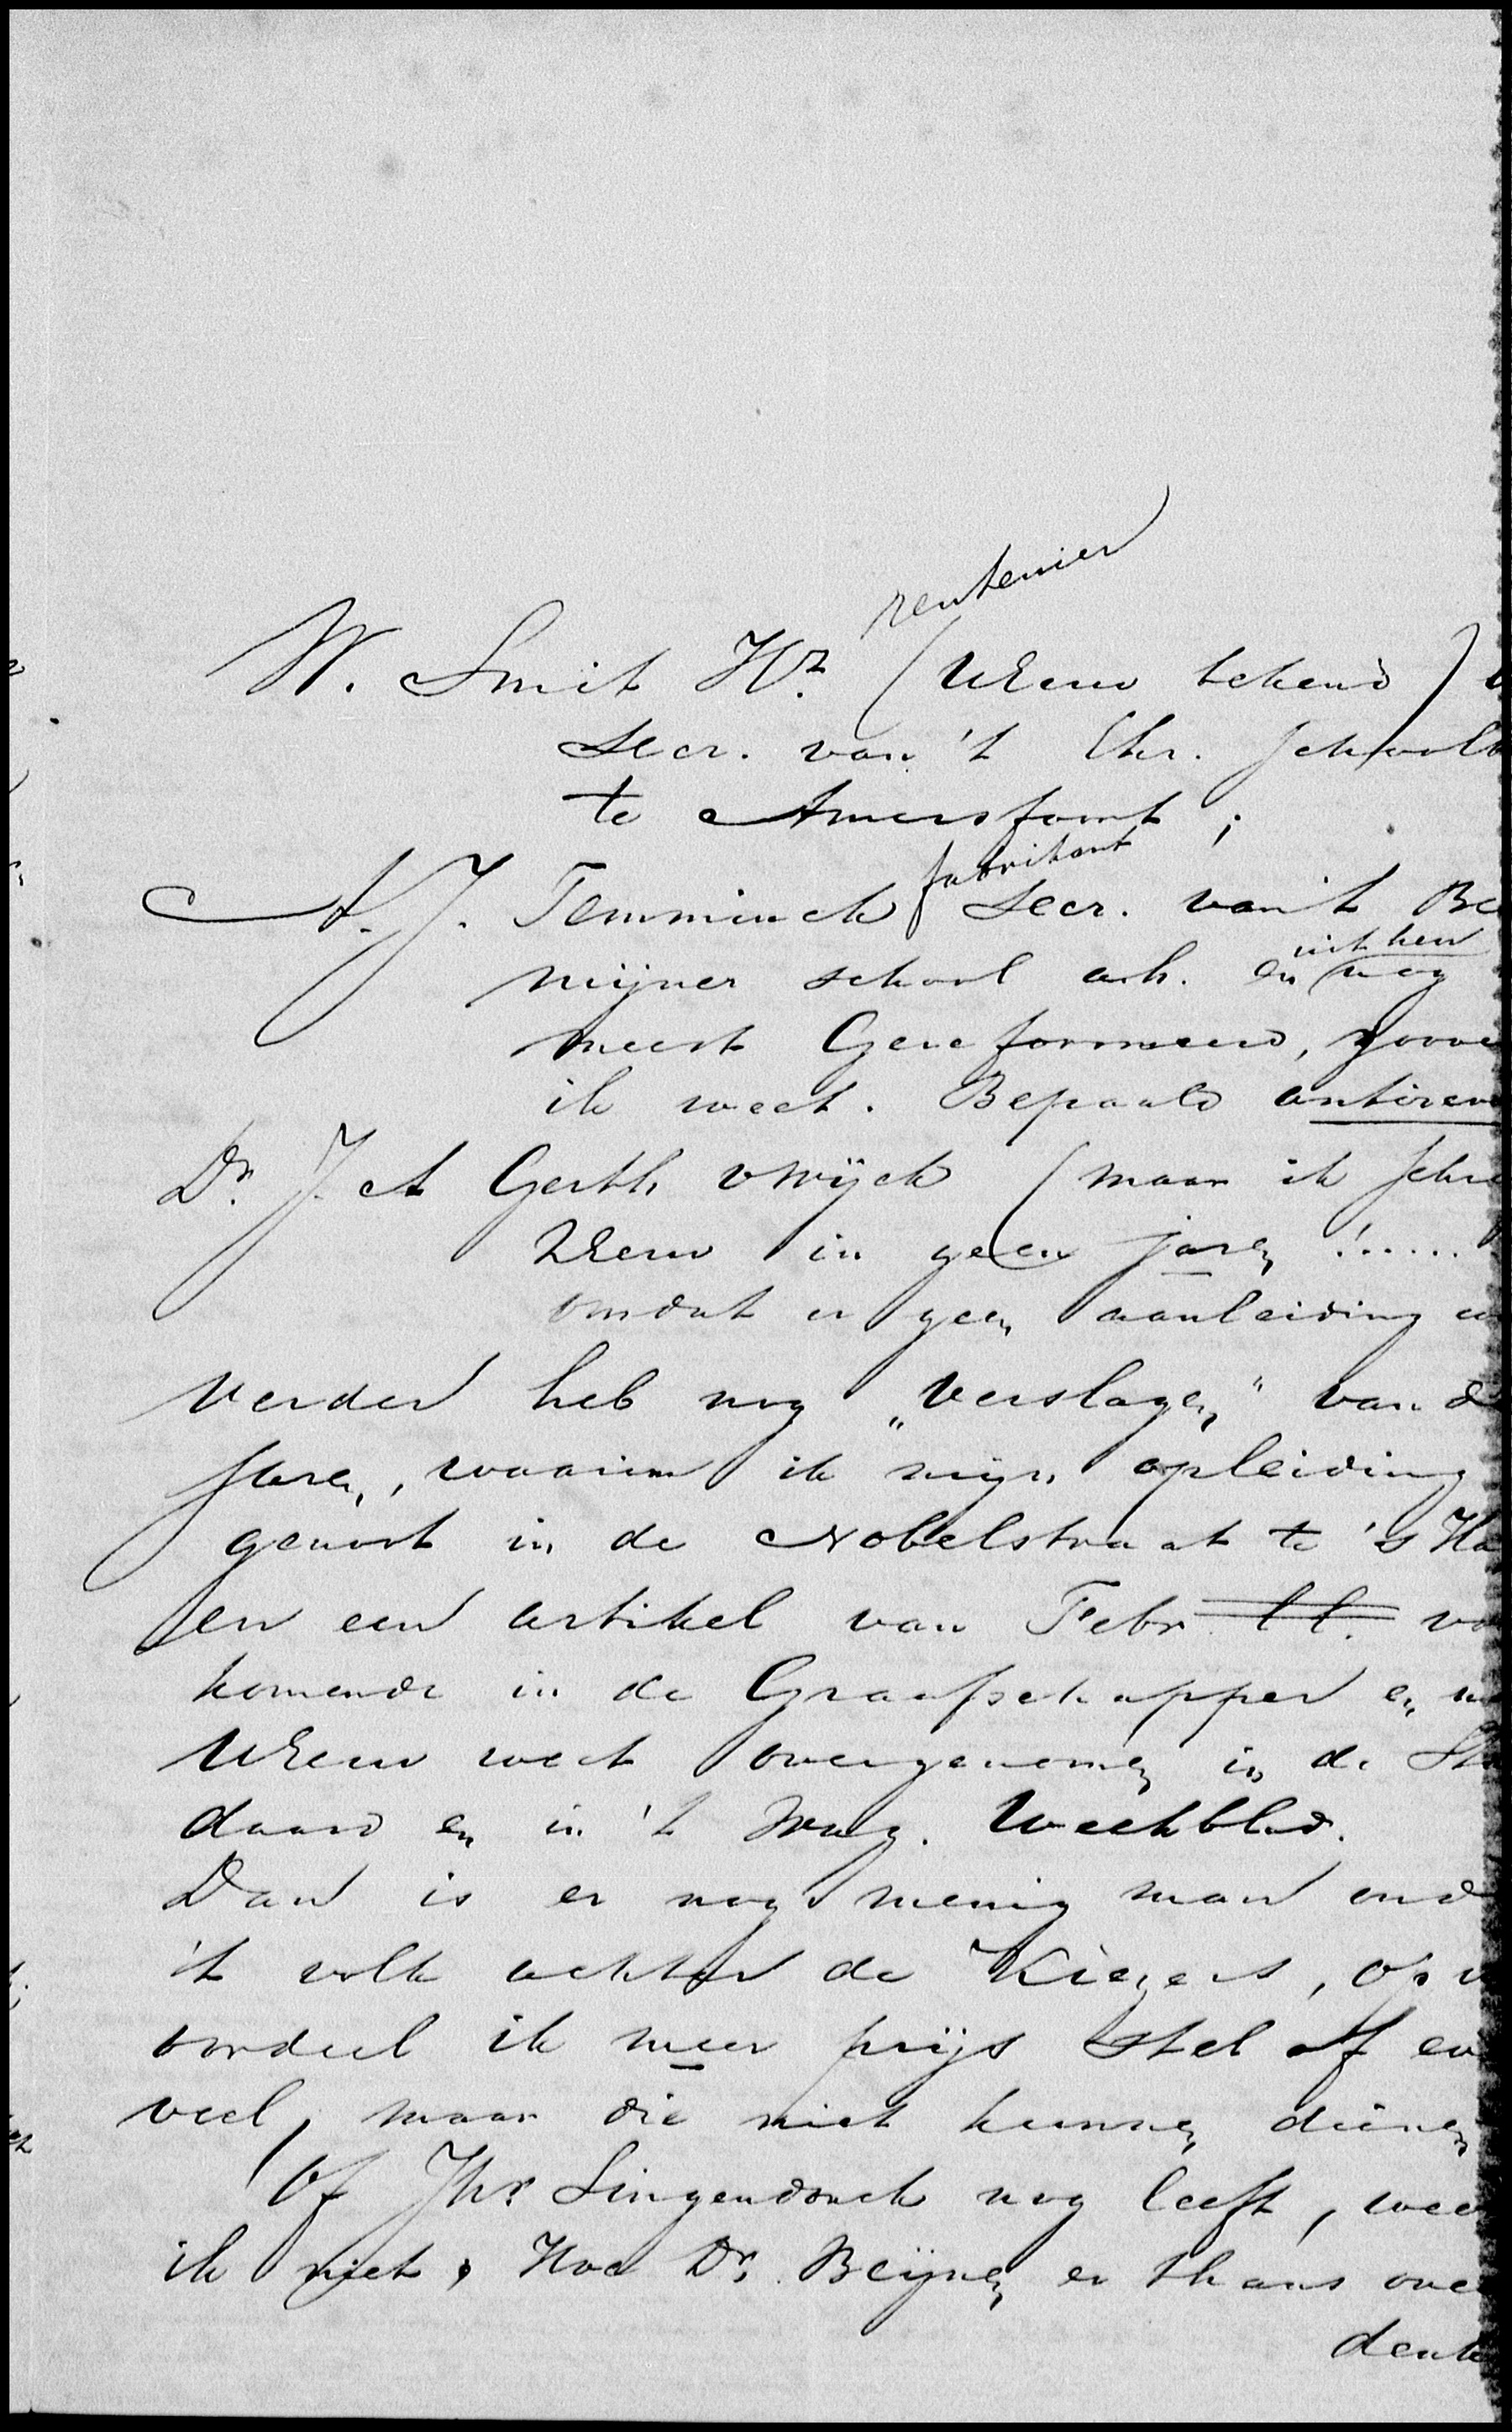 rentenier
W. Smit Hz. (UEeuw bekend)
Secr. van 't Chr. School
te Amersfoort;
fabrikant
A. J. Temminck Secr. van 't Be
uit hen
mijner school ald. en nog
meest Gereformeerd, zoove
ik weet. Bepaald antirev
Dr. J. A Gerth v Wijck (maar ik schre
UEeuw in geen jaren !......
omdat er geen aanleiding
Verder heb nog „Verslagen" van d
jaren, waarin ik mijn opleiding
genoot in de Nobelstraat te 's Ha
en een artikel van Febr. ll. vo
komende in de Graafschapper en
UEeuw weet overgenomen in de St
daard en in 't Wag. Weekblad.
Dan is er nog menig man ond
't volk achter de Kiezers, op w
oordeel ik meer prijs stel of ev
veel, maar die niet kunnen dienen
Of Jhr. Singendonck nog leeft, wee
ik niet. Hoe Dr. Beijnen er thans ove
denk